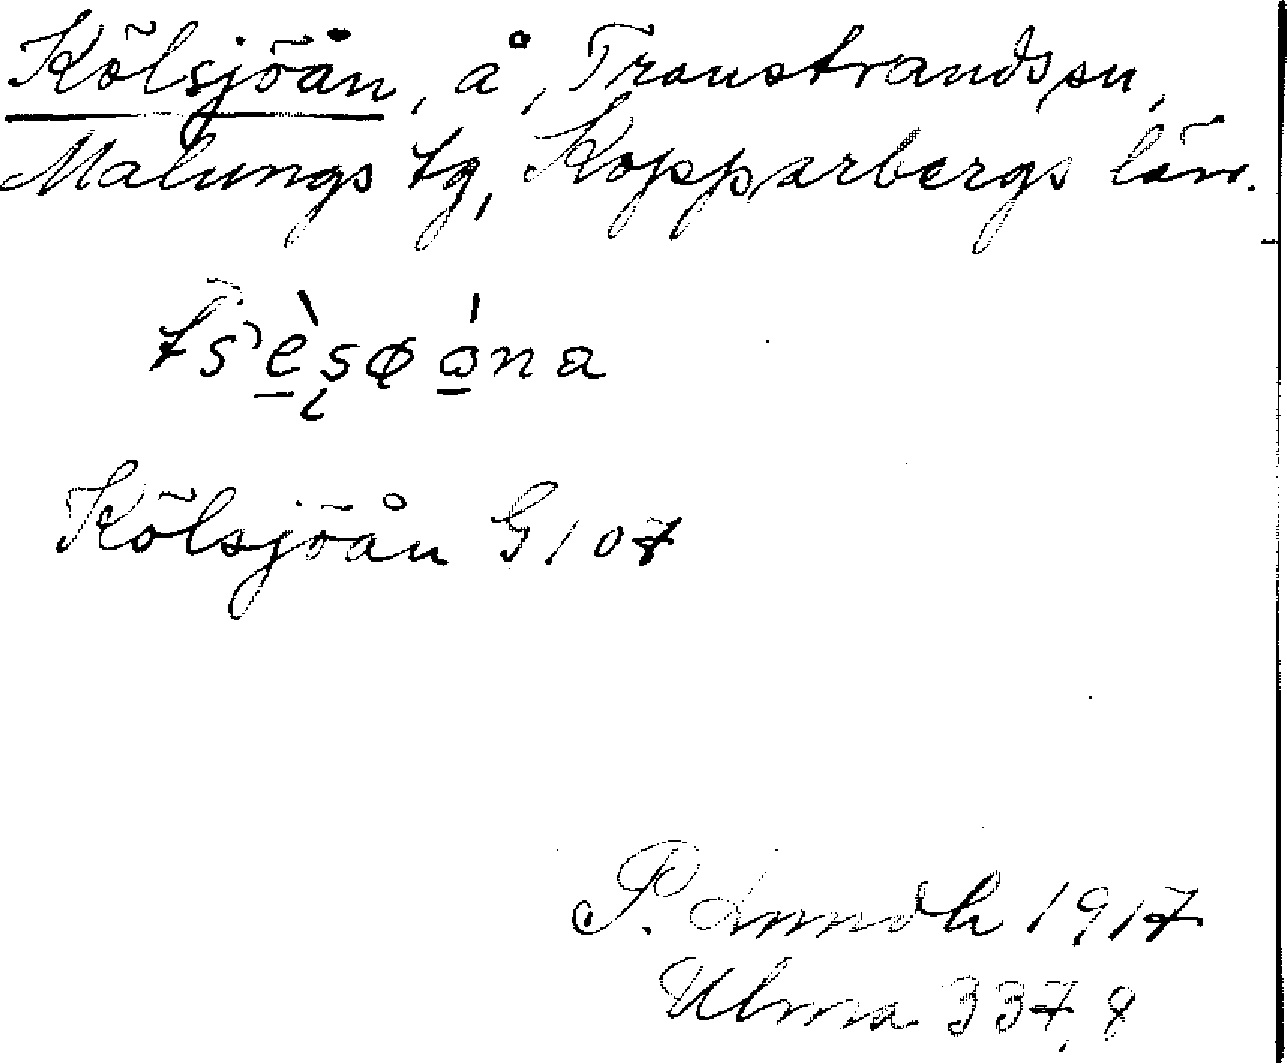 Kölsjöån, å, Transtrands sn,
Malungs tg, Kopparbergs län.
Kölsjöån G 107
P. Lundh 1917
Ulma 337, 8